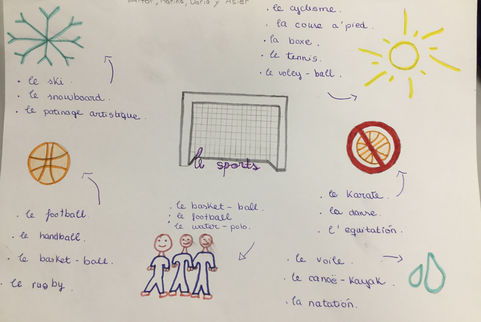 , Marina, Daria y Asier
. le cyclisme.
. la course a'pied.
. la boxe.
. le tennis.
. le voley-ball.
. le ski.
. le snowboard.
. le patinage artistique.
le sports
. le karate.
. la danse.
. l'equitation.
. le football.
. le handball.
. le basket-ball.
. le rugby.
. le basket-ball.
. le football
. le water-polo.
. le voile.
. le canoë-kayak.
. la natation.